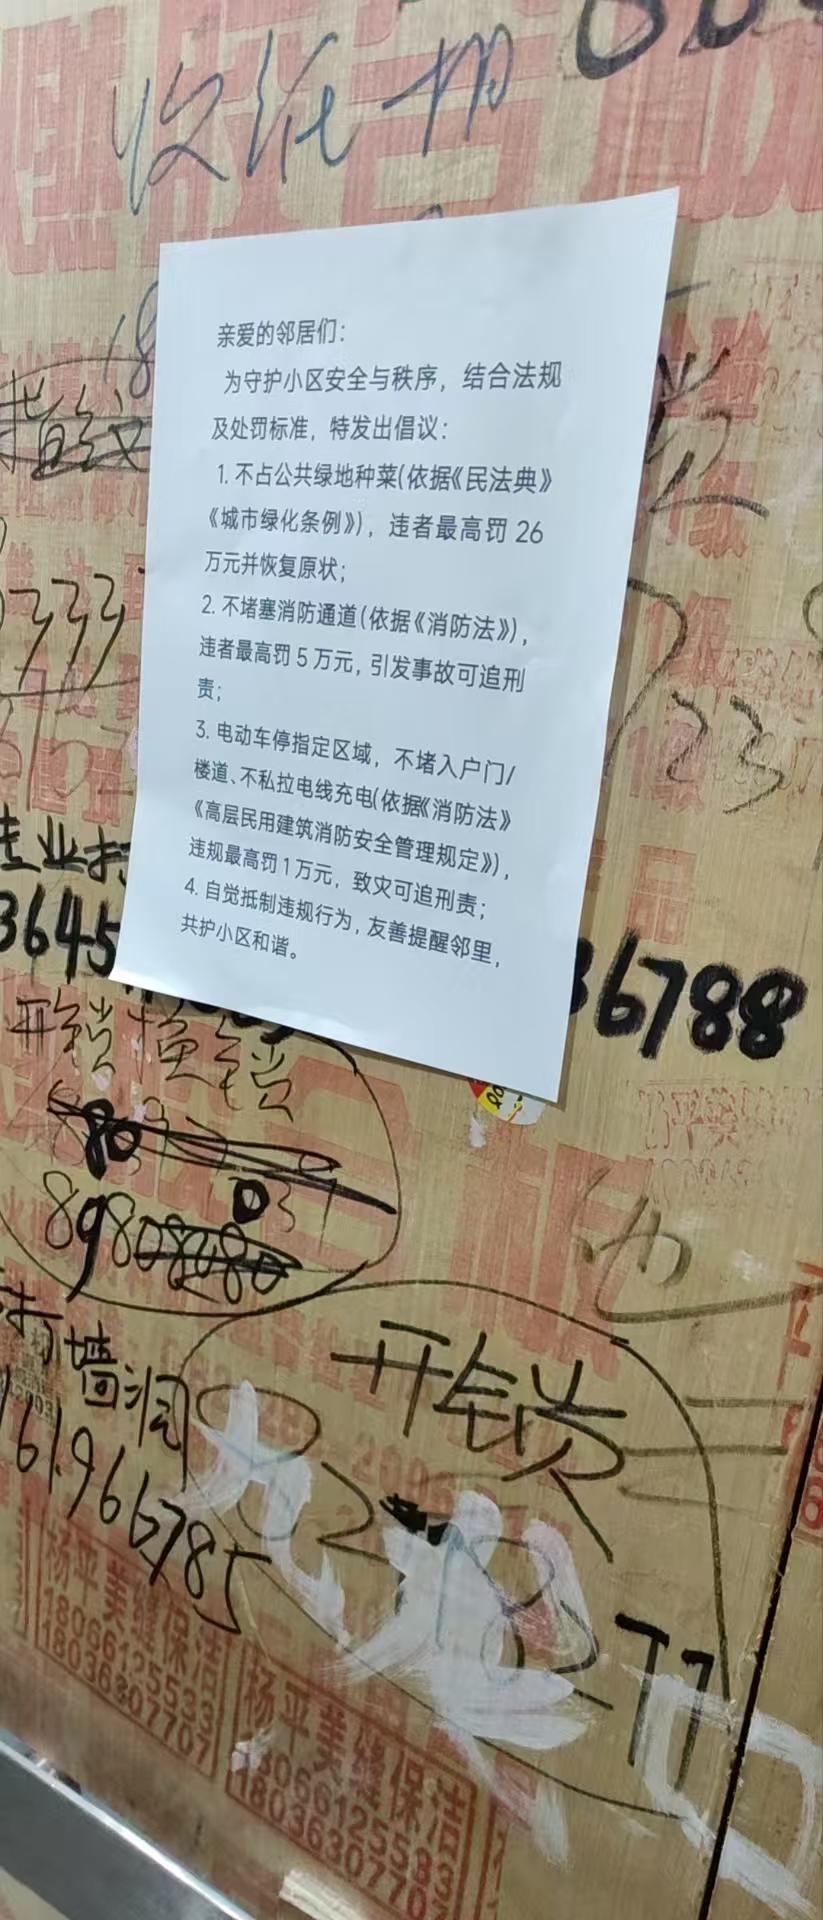 收纸板
亲爱的邻居们：
为守护小区安全与秩序，结合法规
及处罚标准，特发出倡议：
1. 不占公共绿地种菜(依据《民法典》
《城市绿化条例》)，违者最高罚 26
万元并恢复原状；
2. 不堵塞消防通道(依据《消防法》)，
违者最高罚 5 万元，引发事故可追刑
责；
3. 电动车停指定区域，不堵入户门/
楼道、不私拉电线充电(依据《消防法》
《高层民用建筑消防安全管理规定》)，
违规最高罚 1 万元，致灾可追刑责；
4. 自觉抵制违规行为，友善提醒邻里，
共护小区和谐。
指纹
333
23
3645
36788
开锁换锁
开锁
墙洞
161.966785
杨平美缝保洁
18066125533
18036307707
杨平美缝保洁
18066125533
18036307707